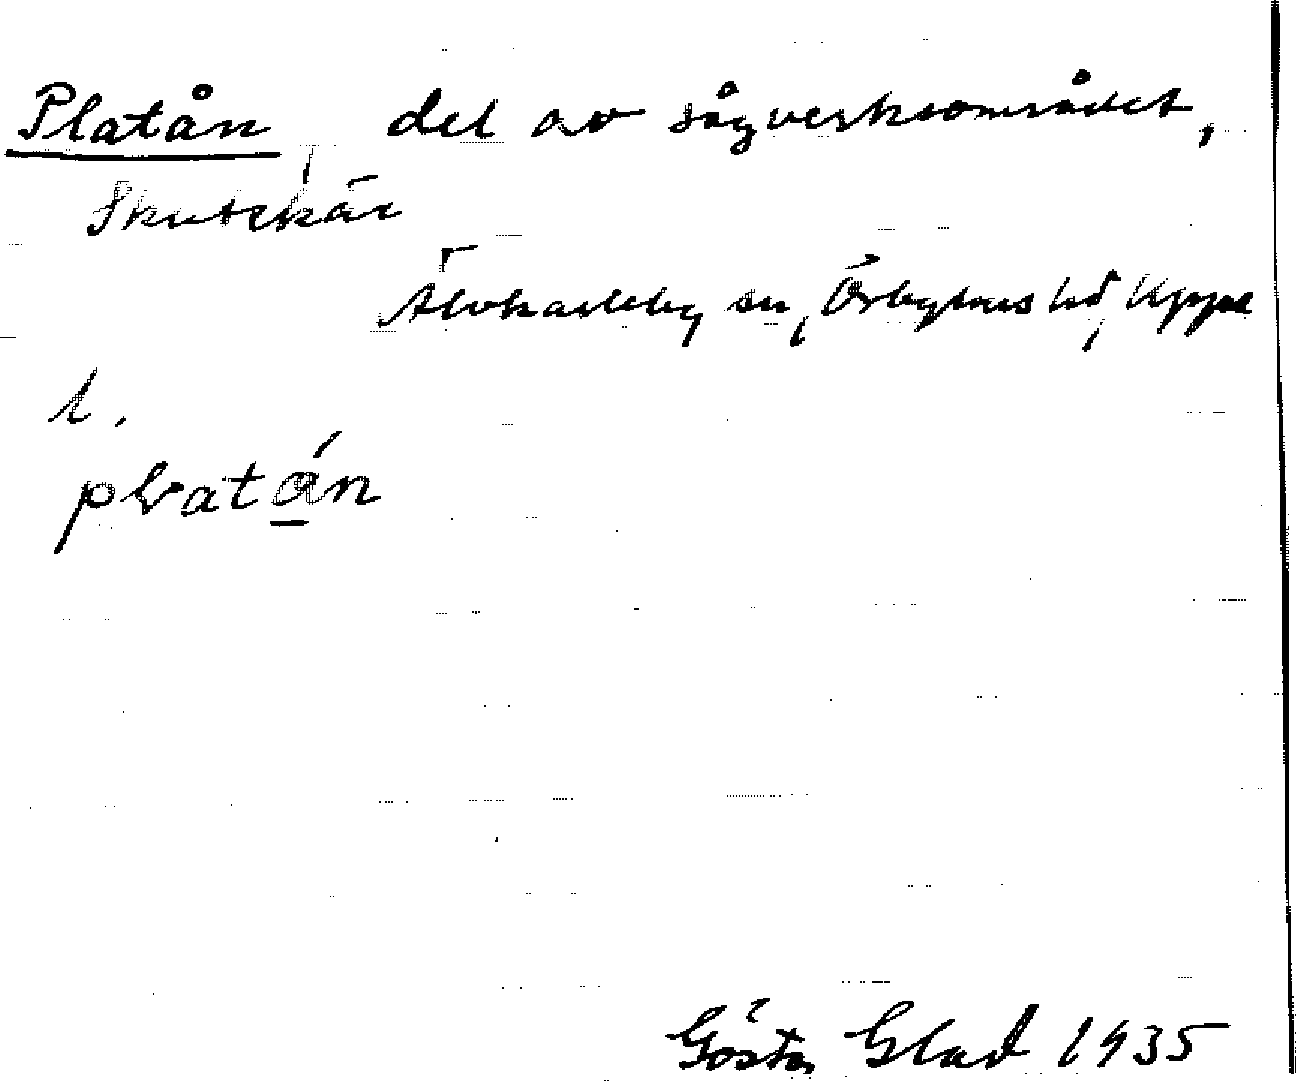 Platån, del av sågverksområdet,
Skutskär
Älvkarleby sn, Örbyhus hd, Upps
l.
platån
Gösta Glad 1935